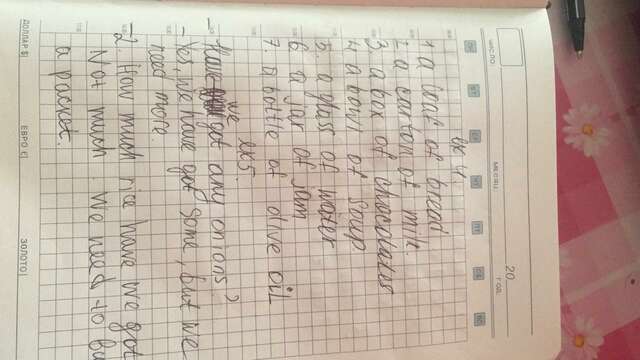 ЧИСЛО
МЕСЯЦ
20
ГОД
ПН ВТ СР ЧТ ПТ СБ ВС
ex 4.
1. a loaf of bread
2. a carton of milk.
3. a box of chocolates
4 a bowl of soup
5. a glass of water
6 a jar of jam
7 a bottle of olive oil
ex 5.
- Have we got any onions?
- Yes, we have got some, but we
need more.
- 2. How much rice have we got
Not much. We need to bu
a packet.
ДОЛЛАР $|
ЕВРО €|
ЗОЛОТО|